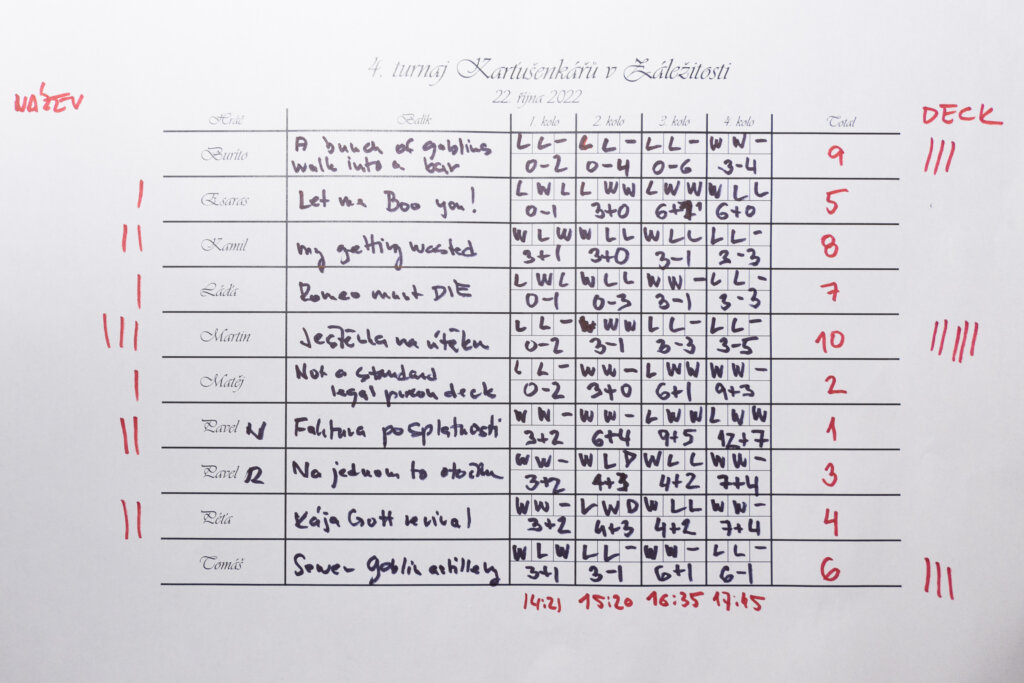 4. turnaj Kartušenkářů v Záležitosti
22. října 2022
NÁZEV
DECK
Hráč Balík 1. kolo 2. kolo 3. kolo 4. kolo Total
Burito A bunch of goblins L L – L L – L L – W W – 9 |||
walk into a bar 0-2 0-4 0-6 3-4
| Esaras Let ma Boo you! L W L L W W L W W W L L 5
0-1 3+0 6+1 6+0
|| Kamil my getting wasted W L W W L L W L L L L – 8
3+1 3+0 3-1 3-3
| Láďa Romeo must DIE L W L W L L W W – L L – 7
0-1 0-3 3-1 3-3
||| Martin Ještěrka na útěku L L – W W L L – L L – 10 || |||
0-2 3-1 3-3 3-5
| Matěj Not a standard L L – W W – L W W W W – 2
legal person deck 0-2 3+0 6+1 9+3
|| Pavel N Faktura po splatnosti W W – W W – L W W L W W 1
3+2 6+4 9+5 12+7
Pavel R Na jednom to otočím W W – W L D W L L W W – 3
3+2 4+3 4+2 7+4
|| Péťa Kája Gott revival W W – L W D W L L W W – 4
3+2 4+3 4+2 7+4
Tomáš Sewer goblin artillery W L W L L – W W – L L – 6 |||
3+1 3-1 6+1 6-1
14:21 15:20 16:35 17:45